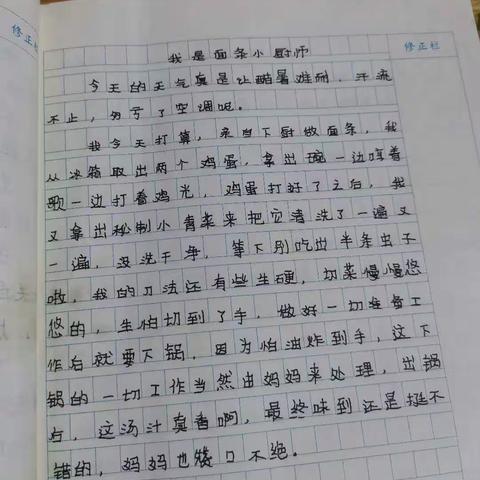 修正栏
我是面条小厨师
修正栏
今天的天气真是让酷暑难耐，汗流
不止，多亏了空调呢。
我今天打算，亲自下厨做面条，我
从冰箱取出两个鸡蛋，拿出碗一边哼着
歌一边打着鸡光，鸡蛋打好了之后，我
又拿出松制小青菜来把它清洗了一遍又
一遍，没洗干净，等下别吃出半条虫子
啦，我的刀法还有些生硬，切菜慢慢悠
悠的，生怕切到了手，做好一切准备工
作后就要下锅，因为怕油炸到手，这下
锅的一切工作当然由妈妈来处理，出锅
后，这汤汁真香啊，最终味到还是挺不
错的，妈妈也赞口不绝。